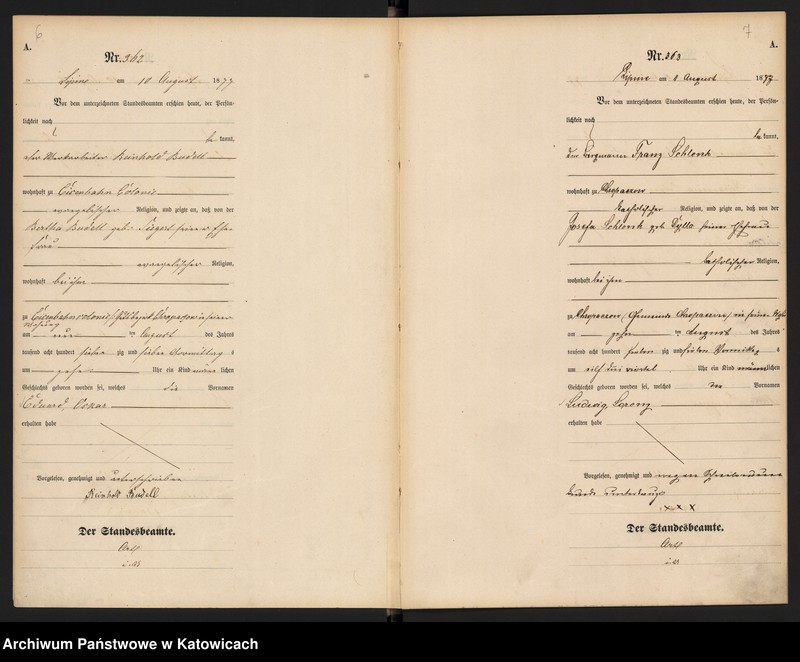 6
A.
Nr. 362
Lipine am 10 August 1877
Vor dem unterzeichneten Standesbeamten erschien heute, der Persön-
lichkeit nach
kannt,
Reinhold Budell
wohnhaft zu Eisenbahn Colonie
evangelischer Religion, und zeigte an, daß von der
Bertha Budell geb. seiner Ehe-
frau
evangelischer Religion,
wohnhaft bei ihm
zu Eisenbahncolonie
am August des Jahres
tausend acht hundert sieben zig und sieben Vormittag s
am Uhr ein Kind männ lichen
Geschlechts geboren worden sei, welches die Vornamen
Eduard, Oskar
erhalten habe
Vorgelesen, genehmigt und unterschrieben
Reinhold Budell
Der Standesbeamte.
7
A.
Nr. 363
Lipine am August 1877
Vor dem unterzeichneten Standesbeamten erschien heute, der Persön-
lichkeit nach
kannt,
der Bergmann Franz Schlenk
wohnhaft zu Chropaczow
katholischer Religion, und zeigte an, daß von der
Josefa Schlenk geb. seiner Ehefrau
katholischer Religion,
wohnhaft bei ihm
zu Chropaczow (Gemeinde Chropaczow) in seiner
am August des Jahres
tausend acht hundert sieben zig und sieben Vormittag s
am elf drei viertel Uhr ein Kind männlichen
Geschlechts geboren worden sei, welches den Vornamen
Ludwig, Lorenz
erhalten habe
Vorgelesen, genehmigt und wegen
unterkreuzt
x x x
Der Standesbeamte.
Archiwum Państwowe w Katowicach